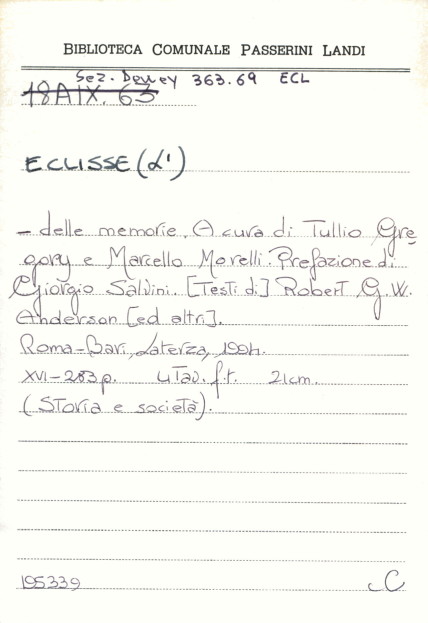 BIBLIOTECA COMUNALE PASSERINI LANDI
Sez. Dewey 363.69 ECL
18A IX. 63
ECLISSE (L')
- delle memorie. A cura di Tullio Gre
gory e Marcello Morelli. Prefazione di
Giorgio Salvini. [Testi di] Robert G.W.
Anderson [ed altri].
Roma-Bari, Laterza, 1994.
XVI-283 p. 4 Tav. f.t. 21 cm.
(Storia e società).
195339 C